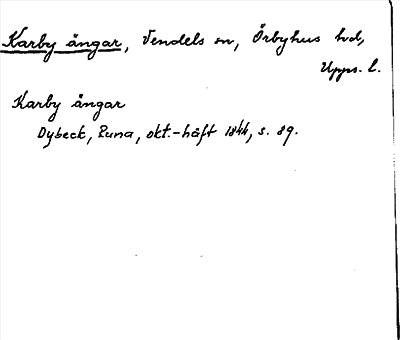 Karby ängar, Vendels sn, Örbyhus hd,
Upps. l.
Karby ängar
Dybeck, Runa, okt.-häft 1844, s. 89.